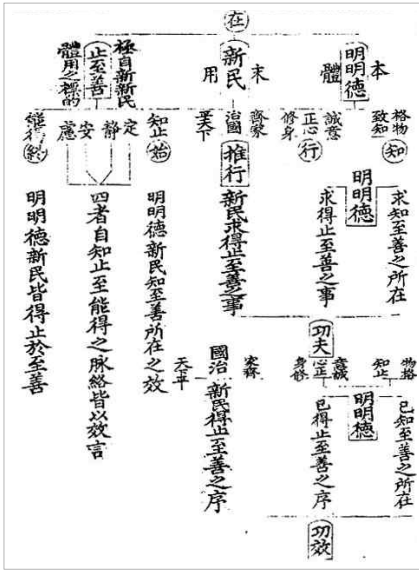 在
本
明明德
體
末
新民
用
極自新新民
止至善
體用之標的
格物
致知
知
誠意
正心
修身
行
齊家
治國
推行
知止
始
定
靜
安
慮
能得
終
求知至善之所在
明明德
求得止至善之事
新民求得止至善之事
明明德新民知至善所在之效
四者自知止至能得之脉絡皆以效言
明明德新民皆得止於至善
功夫
物格
知止
意誠
心正
身修
家齊
國治
天平
已知至善之所在
明明德
已得止至善之序
新民得止至善之序
功效